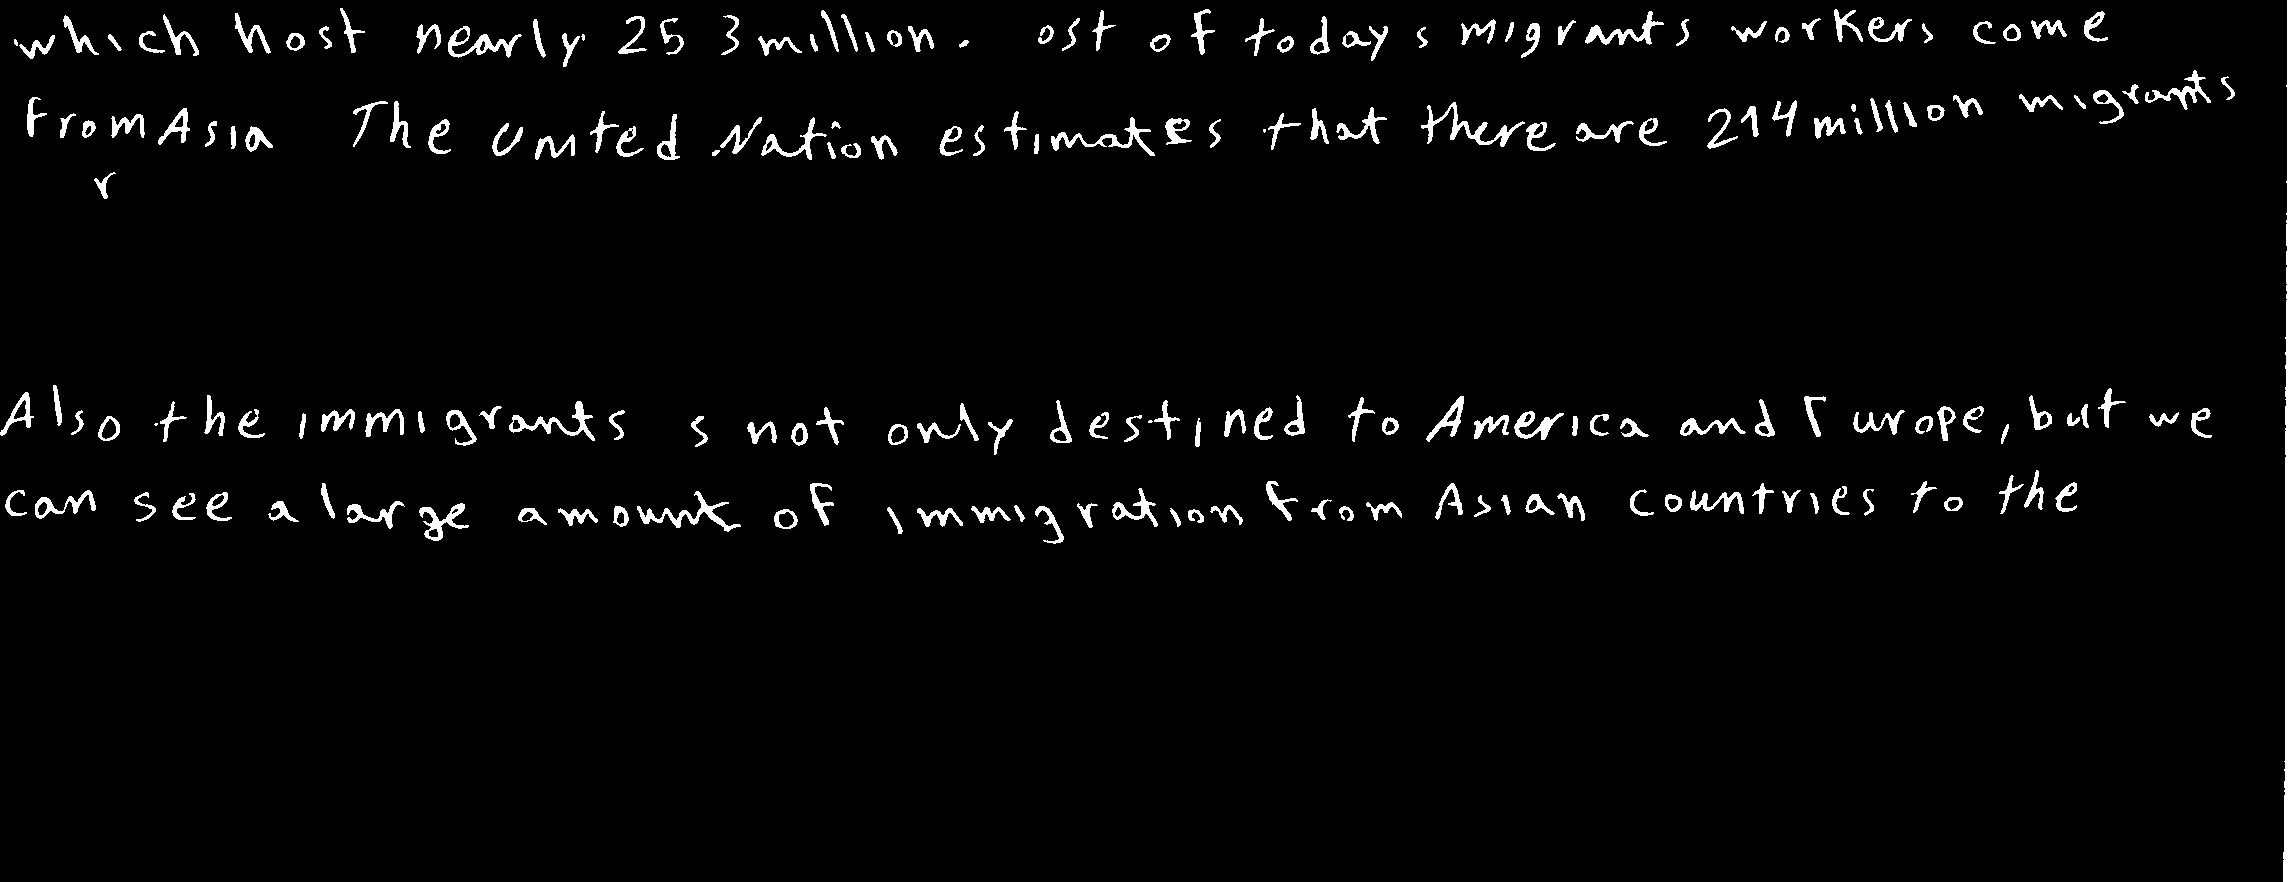 which host nearly 25 3 million. ost of today s migrants workers come
from Asia The United Nation estimates that there are 214 million migrants
r
Also the immigrants s not only destined to America and Europe, but we
can see a large amount of immigration from Asian countries to the